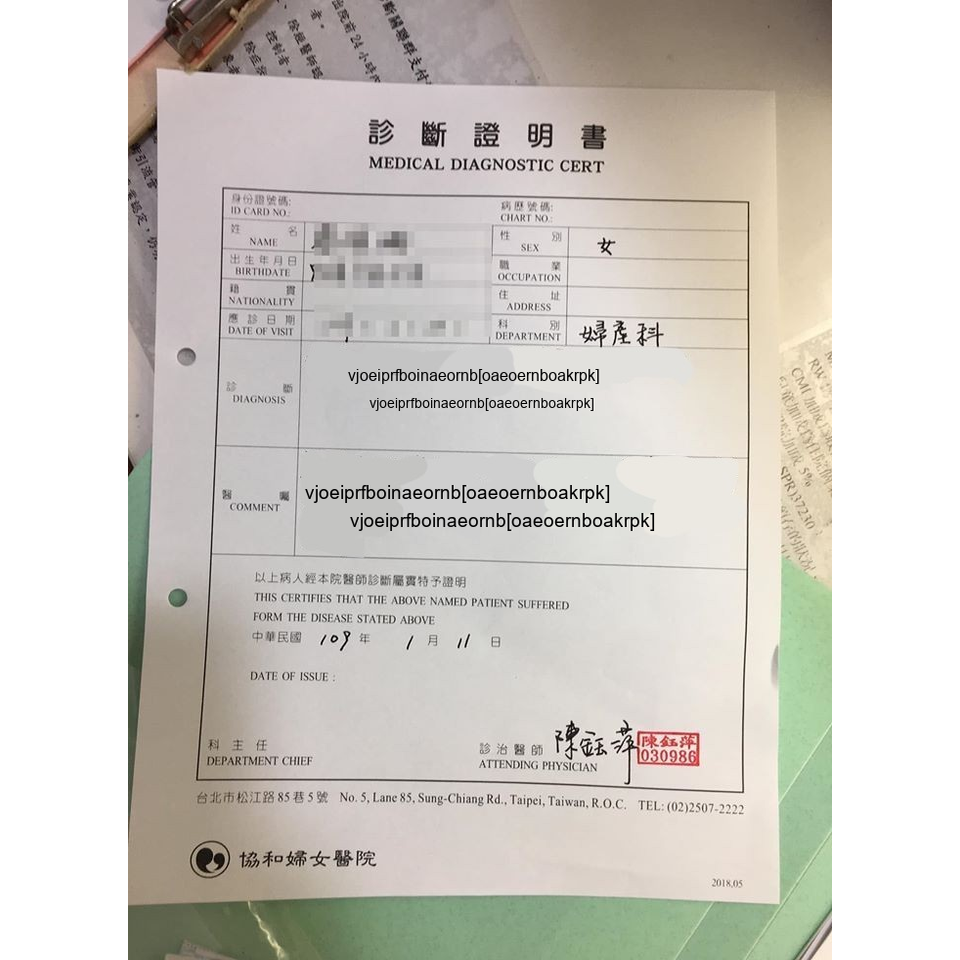 診斷證明書
MEDICAL DIAGNOSTIC CERT
身份證號碼:
ID CARD NO.:
病歷號碼:
CHART NO.:
姓 名
NAME
性 別
SEX
女
出生年月日
BIRTHDATE
職 業
OCCUPATION
籍 貫
NATIONALITY
住 址
ADDRESS
應診日期
DATE OF VISIT
科 別
DEPARTMENT
婦產科
診 斷
DIAGNOSIS
vjoeiprfboinaeornb[oaeoernboakrpk]
vjoeiprfboinaeornb[oaeoernboakrpk]
醫 囑
COMMENT
vjoeiprfboinaeornb[oaeoernboakrpk]
vjoeiprfboinaeornb[oaeoernboakrpk]
以上病人經本院醫師診斷屬實特予證明
THIS CERTIFIES THAT THE ABOVE NAMED PATIENT SUFFERED
FORM THE DISEASE STATED ABOVE
中華民國 109 年 1 月 11 日
DATE OF ISSUE :
科主任
DEPARTMENT CHIEF
診治醫師 陳鈺萍
ATTENDING PHYSICIAN
陳鈺萍
030986
台北市松江路85巷5號 No. 5, Lane 85, Sung-Chiang Rd., Taipei, Taiwan, R.O.C. TEL: (02)2507-2222
協和婦女醫院
2018,05